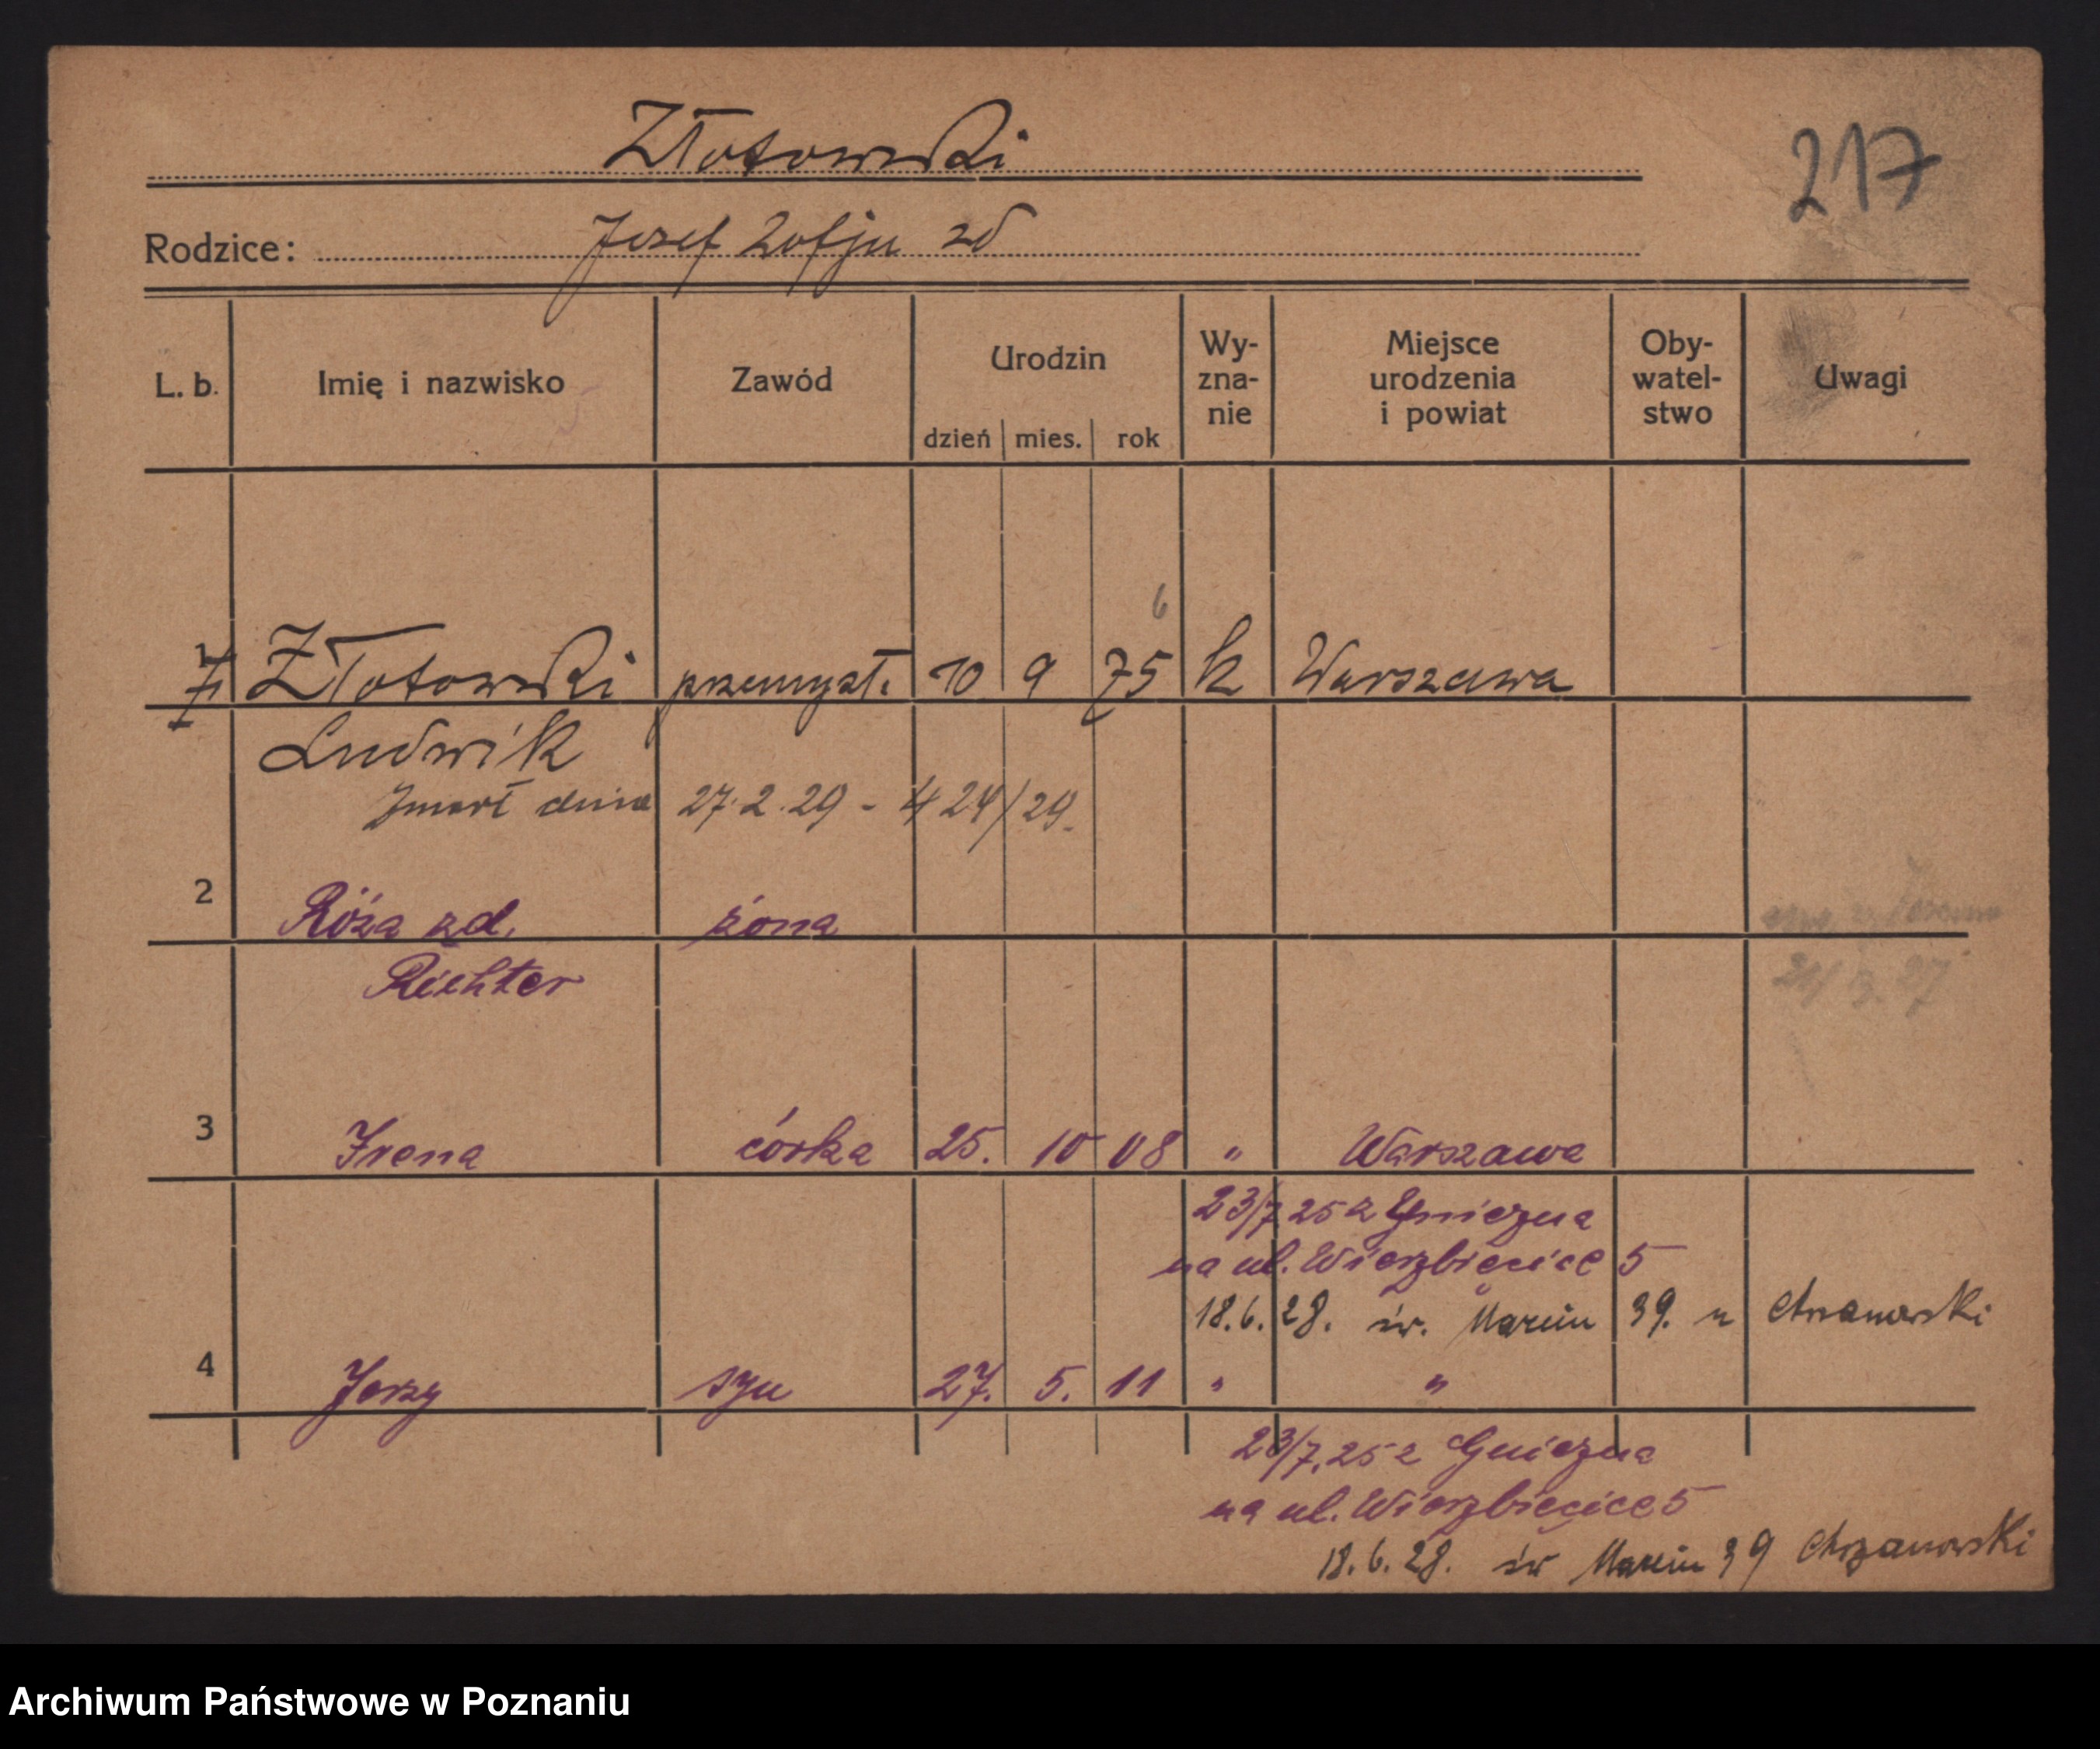 Złotowski
217
Rodzice: Jozef Zofja zd
L. b. Imię i nazwisko Zawód Urodzin dzień mies. rok Wy-zna-nie Miejsce urodzenia i powiat Oby-watel-stwo Uwagi
6
1 Złotowski przemysł. 10 9 75 k Warszawa
Ludwik
Zmarł dnia 27.2.29 - 424/29.
2 Róża zd. żona
Richter
24/3.27
3 Irena córka 25. 10 08 " Warszawa
23/7 25 z Gniezna
na ul. Wierzbięcice 5
18.6.28. św. Marcin 39. u Chrzanowski
4 Jerzy syn 27. 5. 11 " "
23/7.25 z Gniezna
na ul. Wierzbięcice 5
18.6.28. św Marcin 39 Chrzanowski
Archiwum Państwowe w Poznaniu